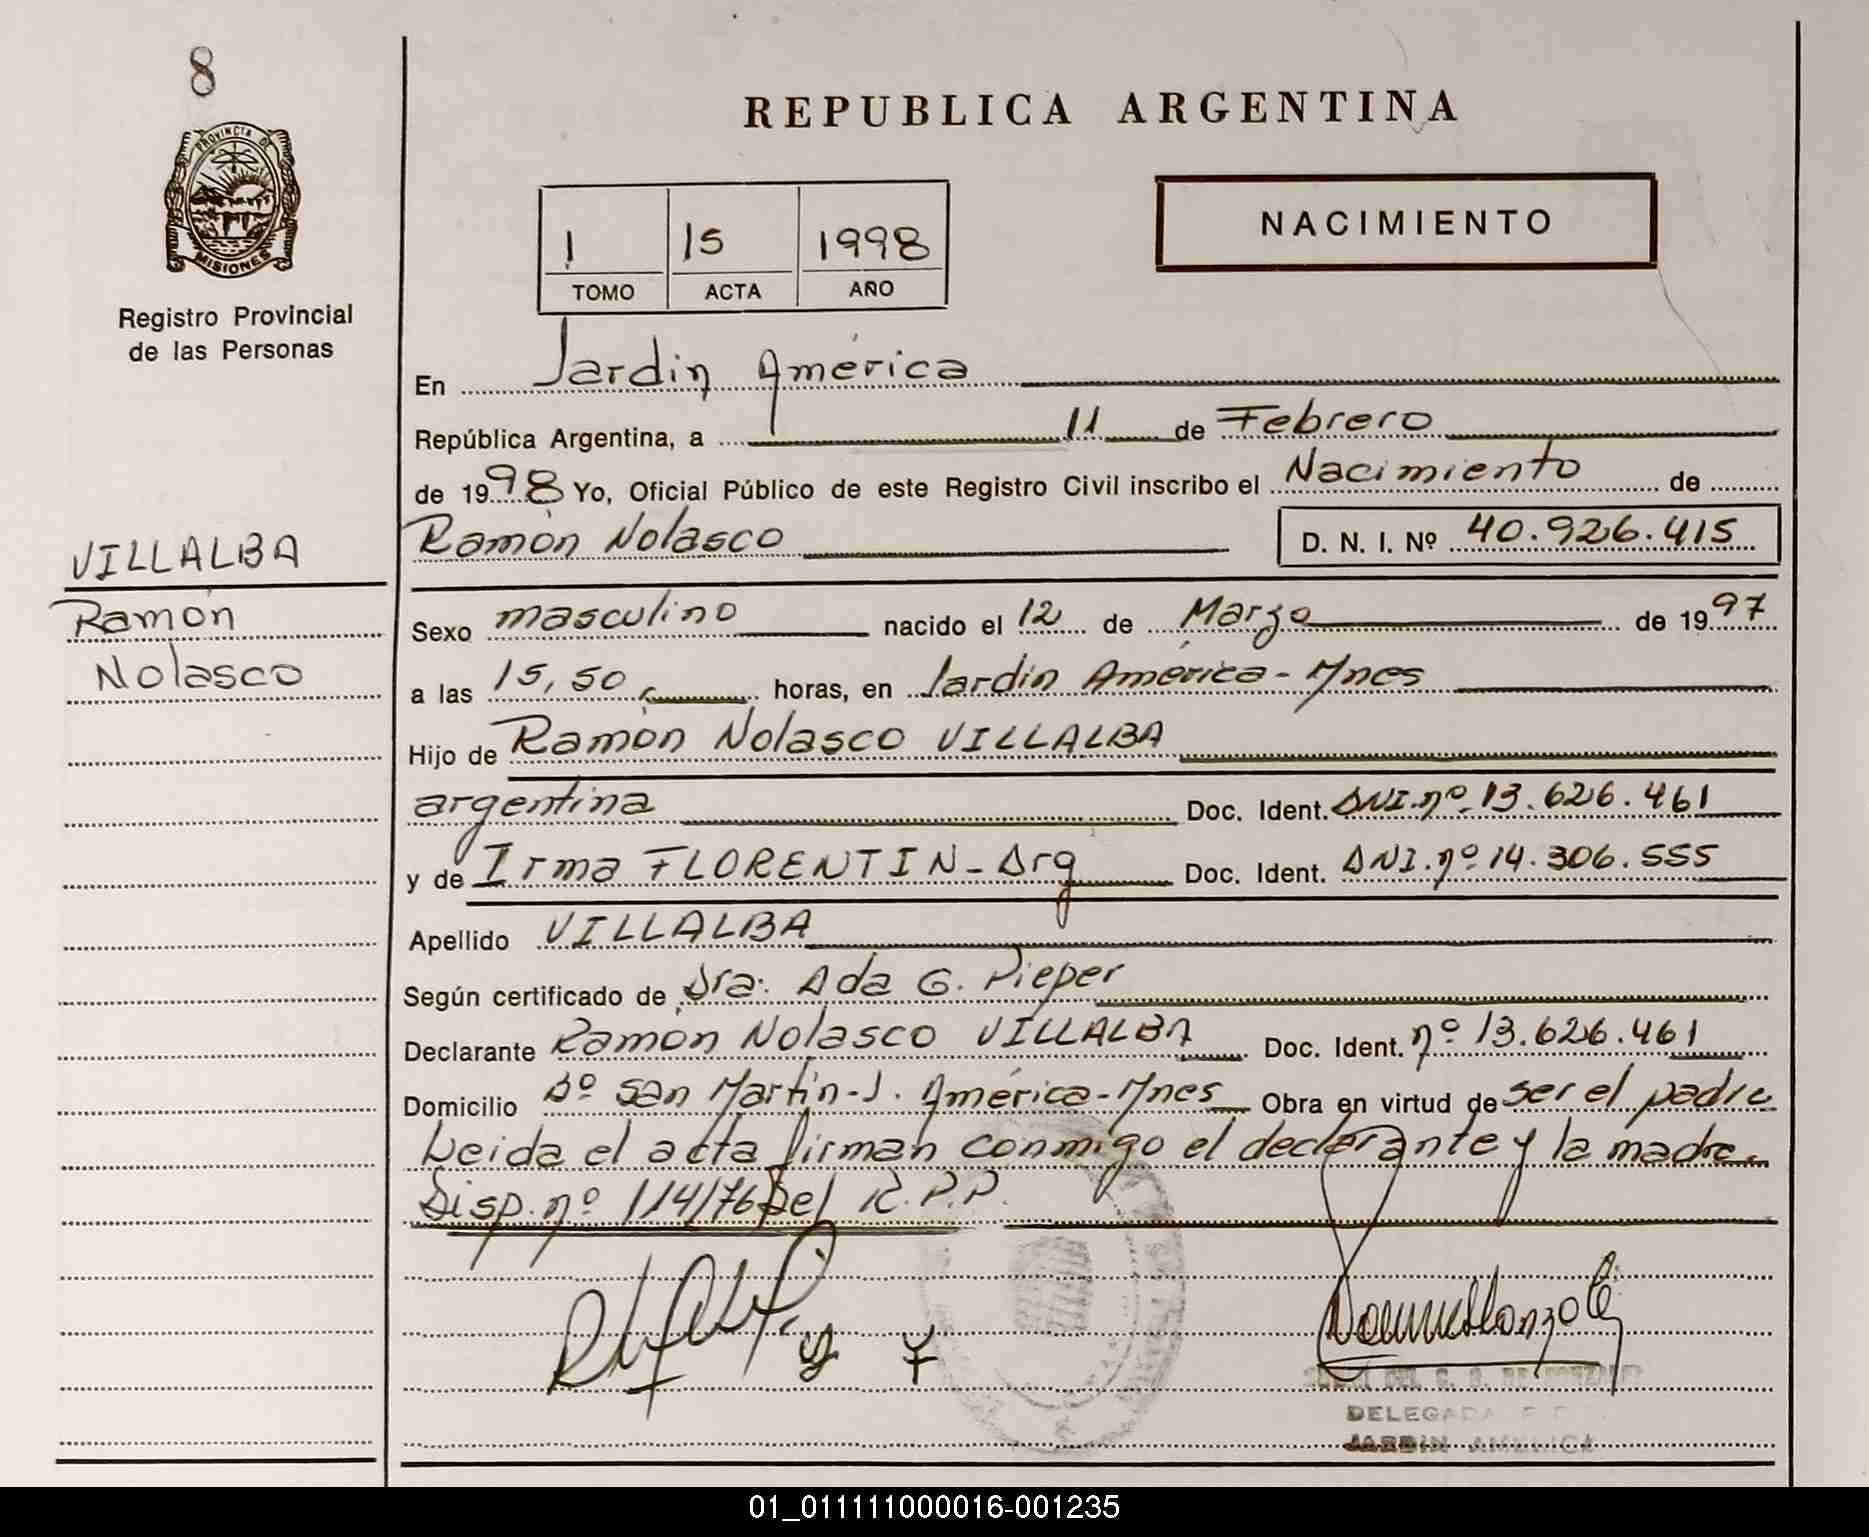 8
PROVINCIA DE
MISIONES
Registro Provincial
de las Personas
VILLALBA
Ramón
Nolasco
REPUBLICA ARGENTINA
1 15 1998
TOMO ACTA AÑO
NACIMIENTO
En Jardin América
República Argentina, a 11 de Febrero
de 1998 Yo, Oficial Público de este Registro Civil inscribo el Nacimiento de
Ramón Nolasco D. N. I. Nº 40.926.415
Sexo masculino nacido el 12 de Marzo de 1997
a las 15,50 horas, en Jardin América - Mnes
Hijo de Ramón Nolasco VILLALBA
argentina Doc. Ident. DNI. nº 13.626.461
y de Irma FLORENTIN - Arg Doc. Ident. DNI. nº 14.306.555
Apellido VILLALBA
Según certificado de Dra. Ada G. Pieper
Declarante Ramón Nolasco VILLALBA Doc. Ident. nº 13.626.461
Domicilio Bº San Martin - J. América - Mnes Obra en virtud de ser el padre
Leida el acta firman conmigo el declarante y la madre.
Disp. nº 114/76 Del R.P.P.
DELEGADA
JARDIN AMERICA
01_011111000016-001235